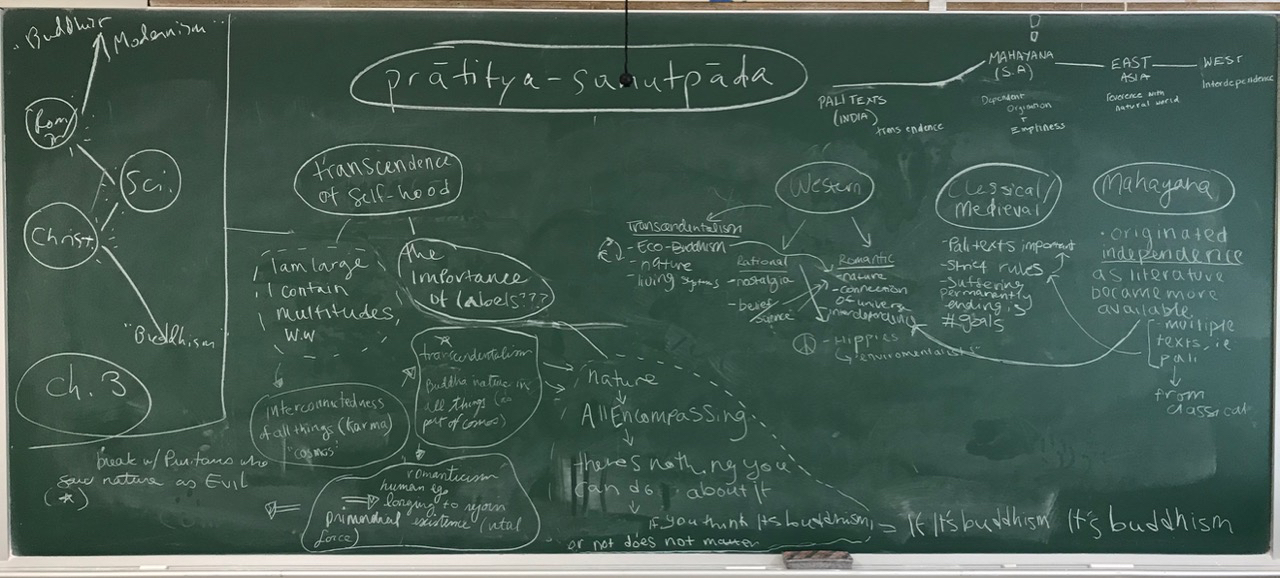 "Buddhist
Modernism"
Rom
Sci.
Christ
"Buddhism
Ch. 3
break w/ Puritans who
saw nature as EVIL
(★)
prātitya-samutpāda
PALI TEXTS
(INDIA)
transendence
MAHAYANA
(S.A)
Dependent
Orgination
+
Emptiness
EAST
ASIA
reverence with
natural world
WEST
Interdependence
transcendence
of Self-Hood
I am large
I contain
multitudes
W.W
Interconnectedness
of all things (karma)
"cosmos"
the
importance
of labels???
transcendentalism
Buddha nature in
all things (as
part of cosmos)
romanticism
human ego
longing to rejoin
primordial existence (vital
force)
nature
All Encompassing
there's nothing you
can do about it
If you think It's buddhism,
or not does not matter
= If It's buddhism It's buddhism
Western
Transcendentalism
- Eco-Buddhism
- nature
- living systems
Rational
- nostalgia
- belief
science
Romantic
- nature
- connection
of universe
interdependency
- Hippies
"enviromentalists"
Classical/
Medieval
- Pali texts important
- Strict rules
- Suffering
permanently
ending is
#goals
Mahayana
• originated
independence
as literature
became more
available
- multiple
texts, ie
pali
from
classical